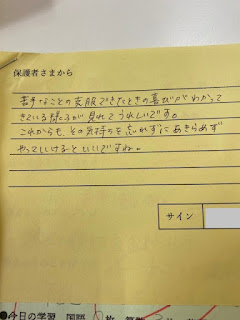 保護者さまから
苦手なことの克服できたときの喜びがわかって
きている様子が見れてうれしいです。
これからも、その気持ちを忘れずにあきらめず
やっていけるといいですね。
サイン
●今日の学習 国語 枚 算数